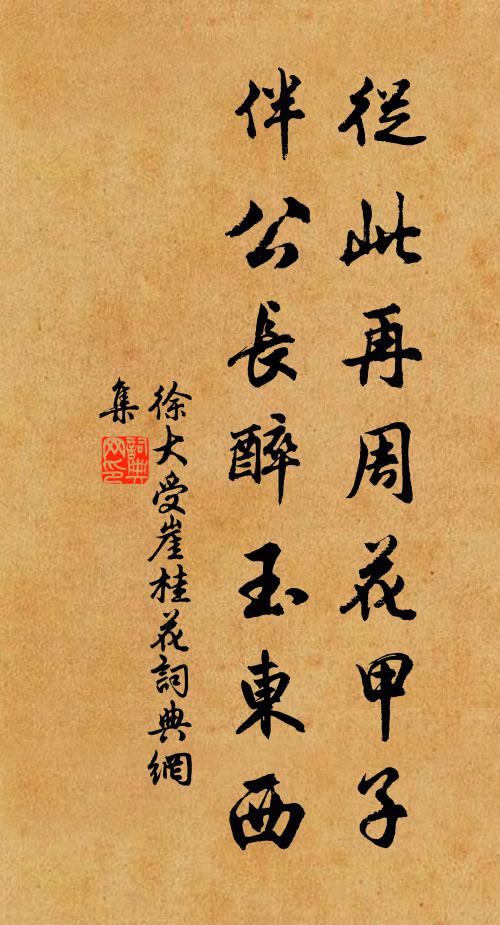 從此再周花甲子
伴公長醉玉東西
徐大受崖桂花詞典網
集
詞典網印